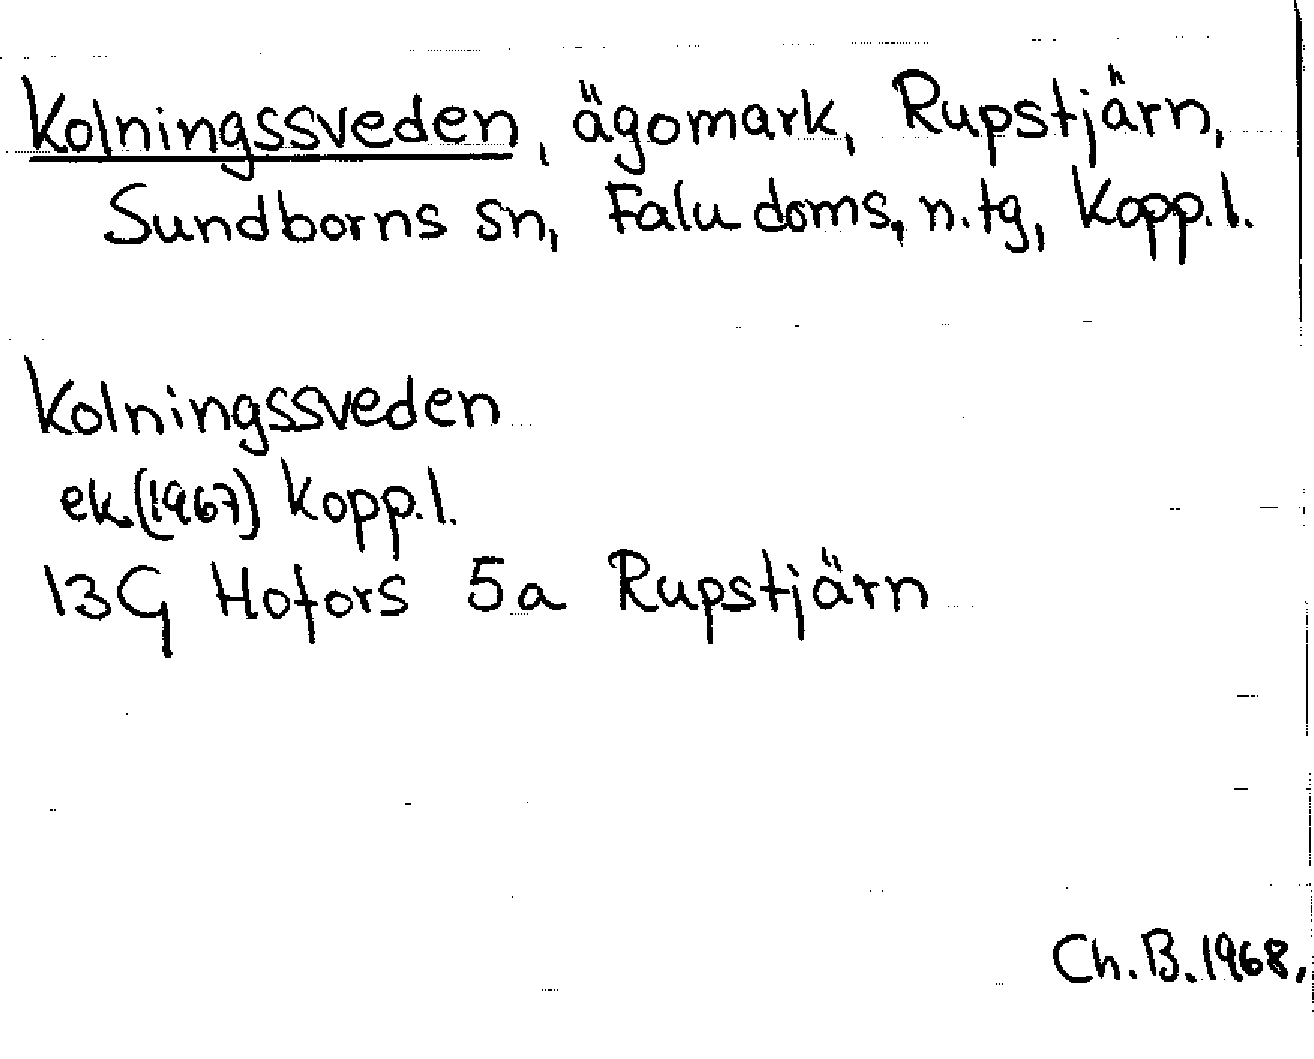 Kolningssveden, ägomark, Rupstjärn,
Sundborns sn, Falu doms, n.tg, Kopp.l.
Kolningssveden
ek.(1967) Kopp.l.
13G Hofors 5a Rupstjärn
Ch.B.1968.